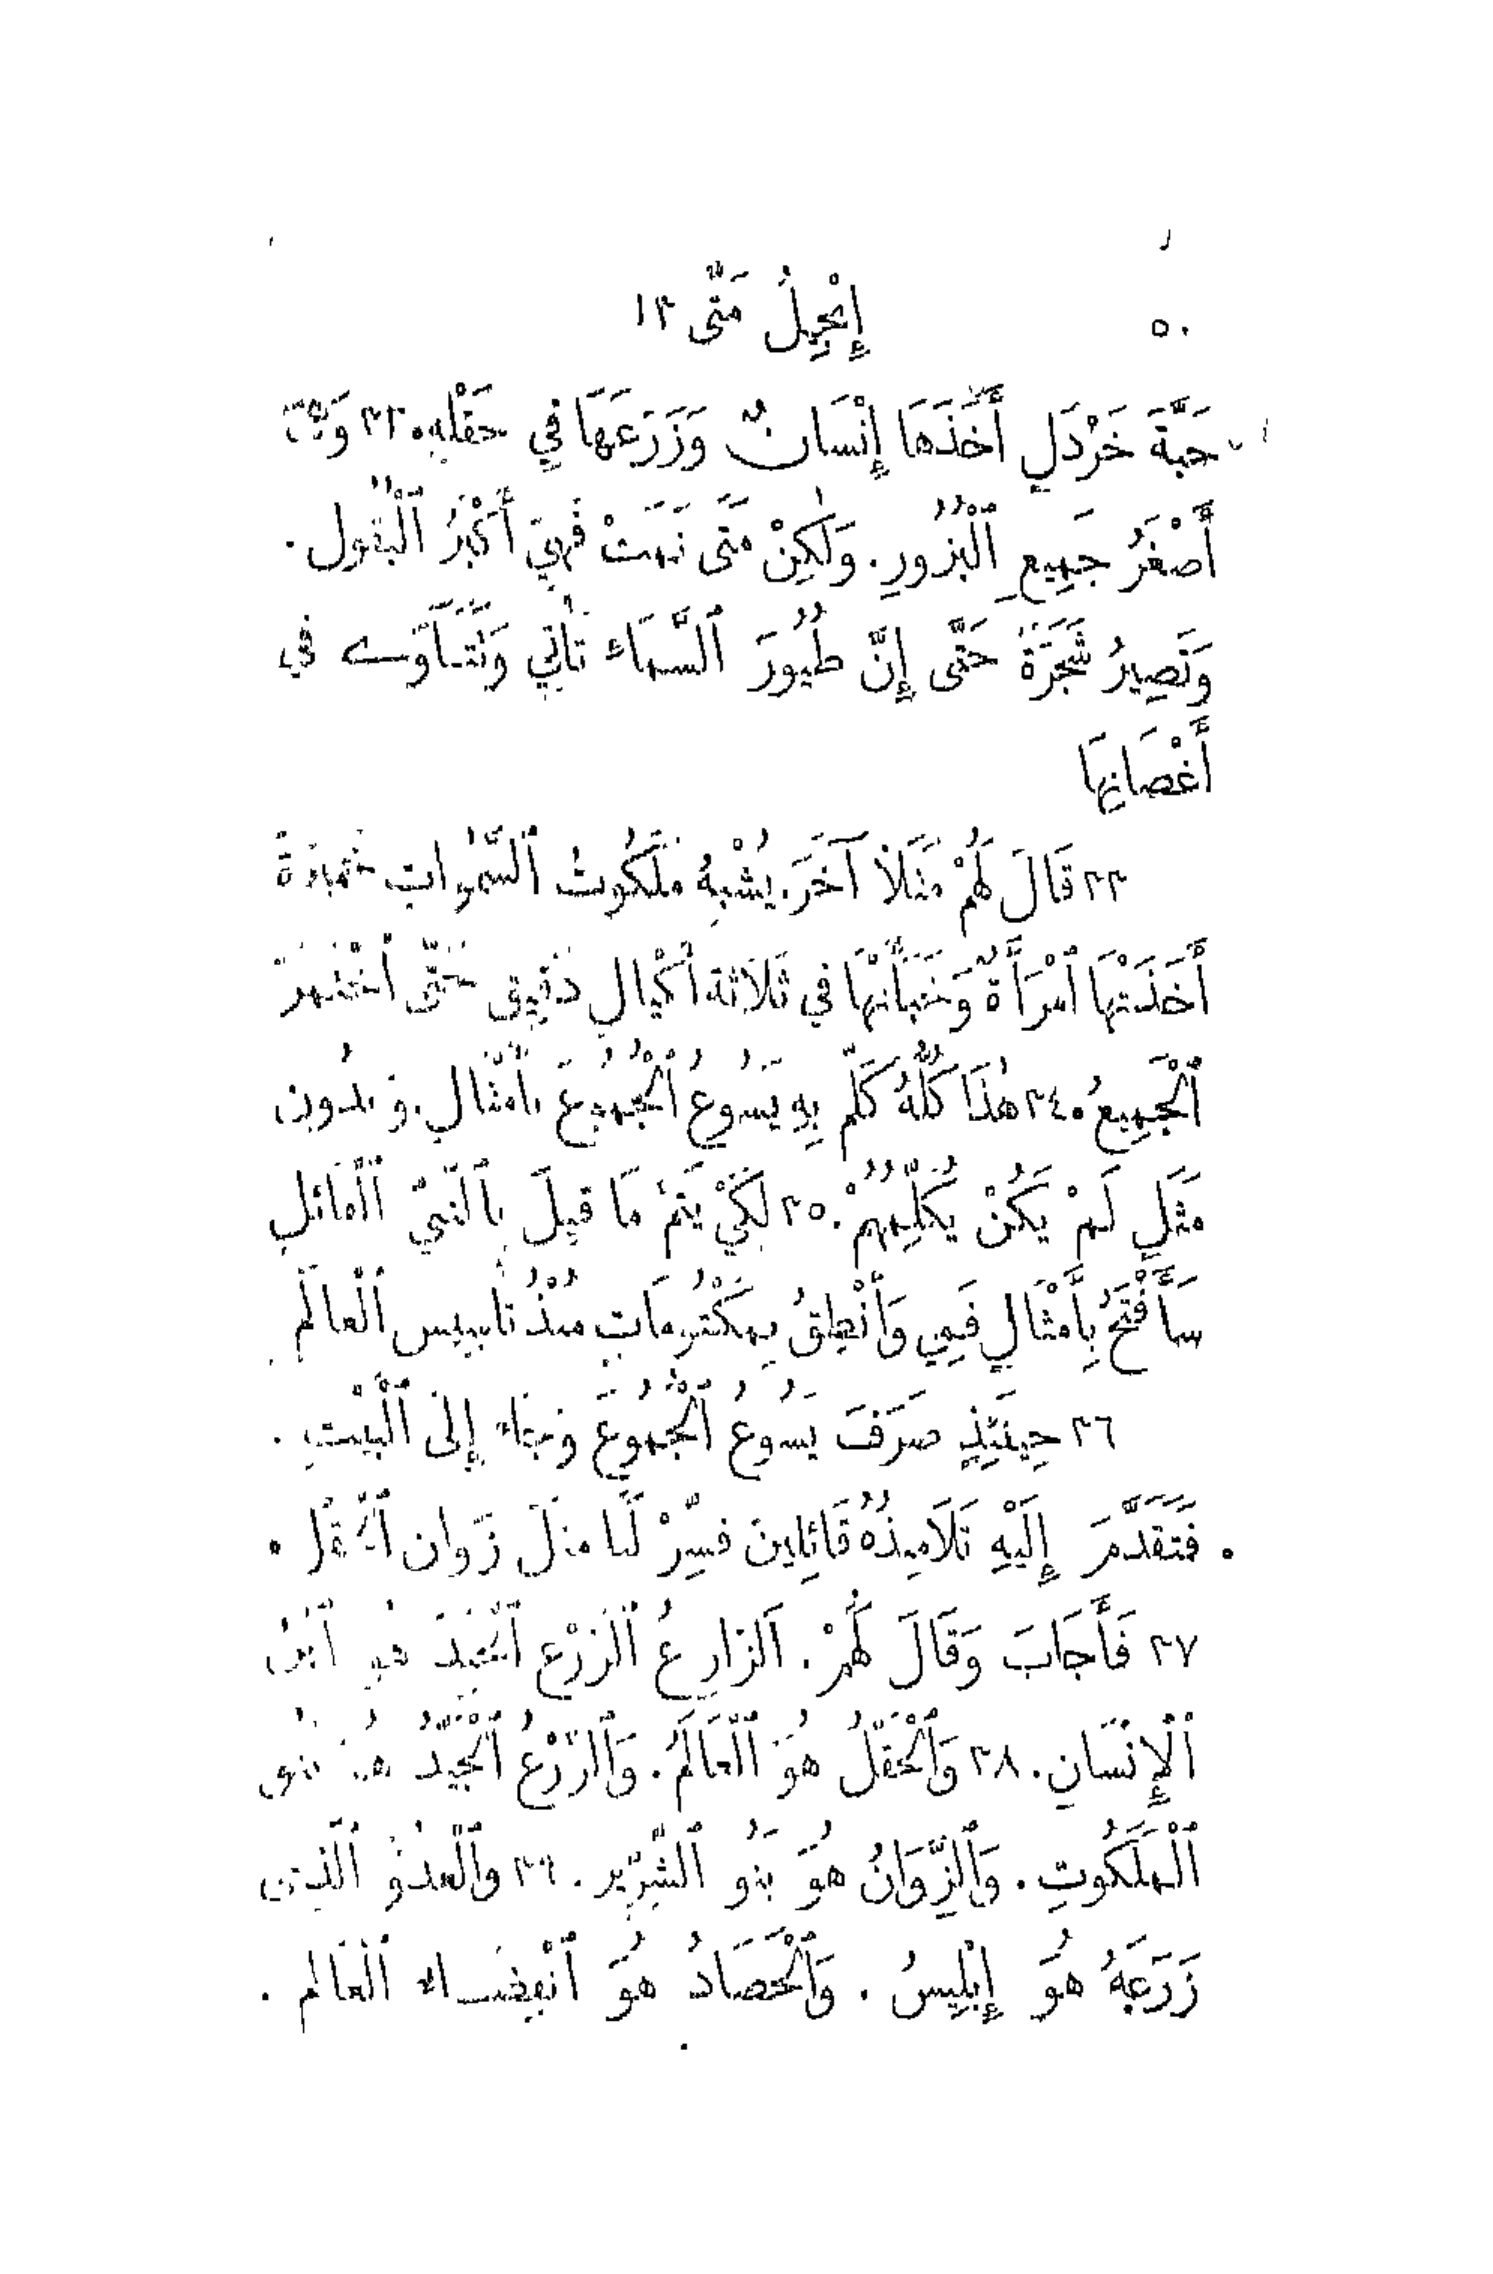 ٥٠ إِنْجِيلُ مَتَّى ١٣
حَبَّةَ خَرْدَلٍ أَخَذَهَا إِنْسَانٌ وَزَرَعَهَا فِي حَقْلِهِ. ٣٢ وَهِيَ
أَصْغَرُ جَمِيعِ ٱلْبُزُورِ. وَلٰكِنْ مَتَى نَمَتْ فَهِيَ أَكْبَرُ ٱلْبُقُولِ.
وَتَصِيرُ شَجَرَةً حَتَّى إِنَّ طُيُورَ ٱلسَّمَاءِ تَأْتِي وَتَتَآوَى فِي
أَغْصَانِهَا
٣٣ قَالَ لَهُمْ مَثَلًا آخَرَ. يُشْبِهُ مَلَكُوتُ ٱلسَّمٰوَاتِ خَمِيرَةً
أَخَذَتْهَا ٱمْرَأَةٌ وَخَبَّأَتْهَا فِي ثَلَاثَةِ أَكْيَالِ دَقِيقٍ حَتَّى ٱخْتَمَرَ
ٱلْجَمِيعُ. ٣٤ هٰذَا كُلُّهُ كَلَّمَ بِهِ يَسُوعُ ٱلْجُمُوعَ بِأَمْثَالٍ. وَبِدُونِ
مَثَلٍ لَمْ يَكُنْ يُكَلِّمُهُمْ. ٣٥ لِكَيْ يَتِمَّ مَا قِيلَ بِٱلنَّبِيِّ ٱلْقَائِلِ
سَأَفْتَحُ بِأَمْثَالٍ فَمِي وَأَنْطِقُ بِمَكْتُومَاتٍ مُنْذُ تَأْسِيسِ ٱلْعَالَمِ
٣٦ حِينَئِذٍ صَرَفَ يَسُوعُ ٱلْجُمُوعَ وَجَاءَ إِلَى ٱلْبَيْتِ.
فَتَقَدَّمَ إِلَيْهِ تَلَامِيذُهُ قَائِلِينَ فَسِّرْ لَنَا مَثَلَ زَوَانِ ٱلْحَقْلِ.
٣٧ فَأَجَابَ وَقَالَ لَهُمْ. اَلزَّارِعُ ٱلزَّرْعَ ٱلْجَيِّدَ هُوَ ٱبْنُ
ٱلْإِنْسَانِ. ٣٨ وَٱلْحَقْلُ هُوَ ٱلْعَالَمُ. وَٱلزَّرْعُ ٱلْجَيِّدُ هُوَ بَنُو
ٱلْمَلَكُوتِ. وَٱلزَّوَانُ هُوَ بَنُو ٱلشِّرِّيرِ. ٣٩ وَٱلْعَدُوُّ ٱلَّذِي
زَرَعَهُ هُوَ إِبْلِيسُ. وَٱلْحَصَادُ هُوَ ٱنْقِضَاءُ ٱلْعَالَمِ.